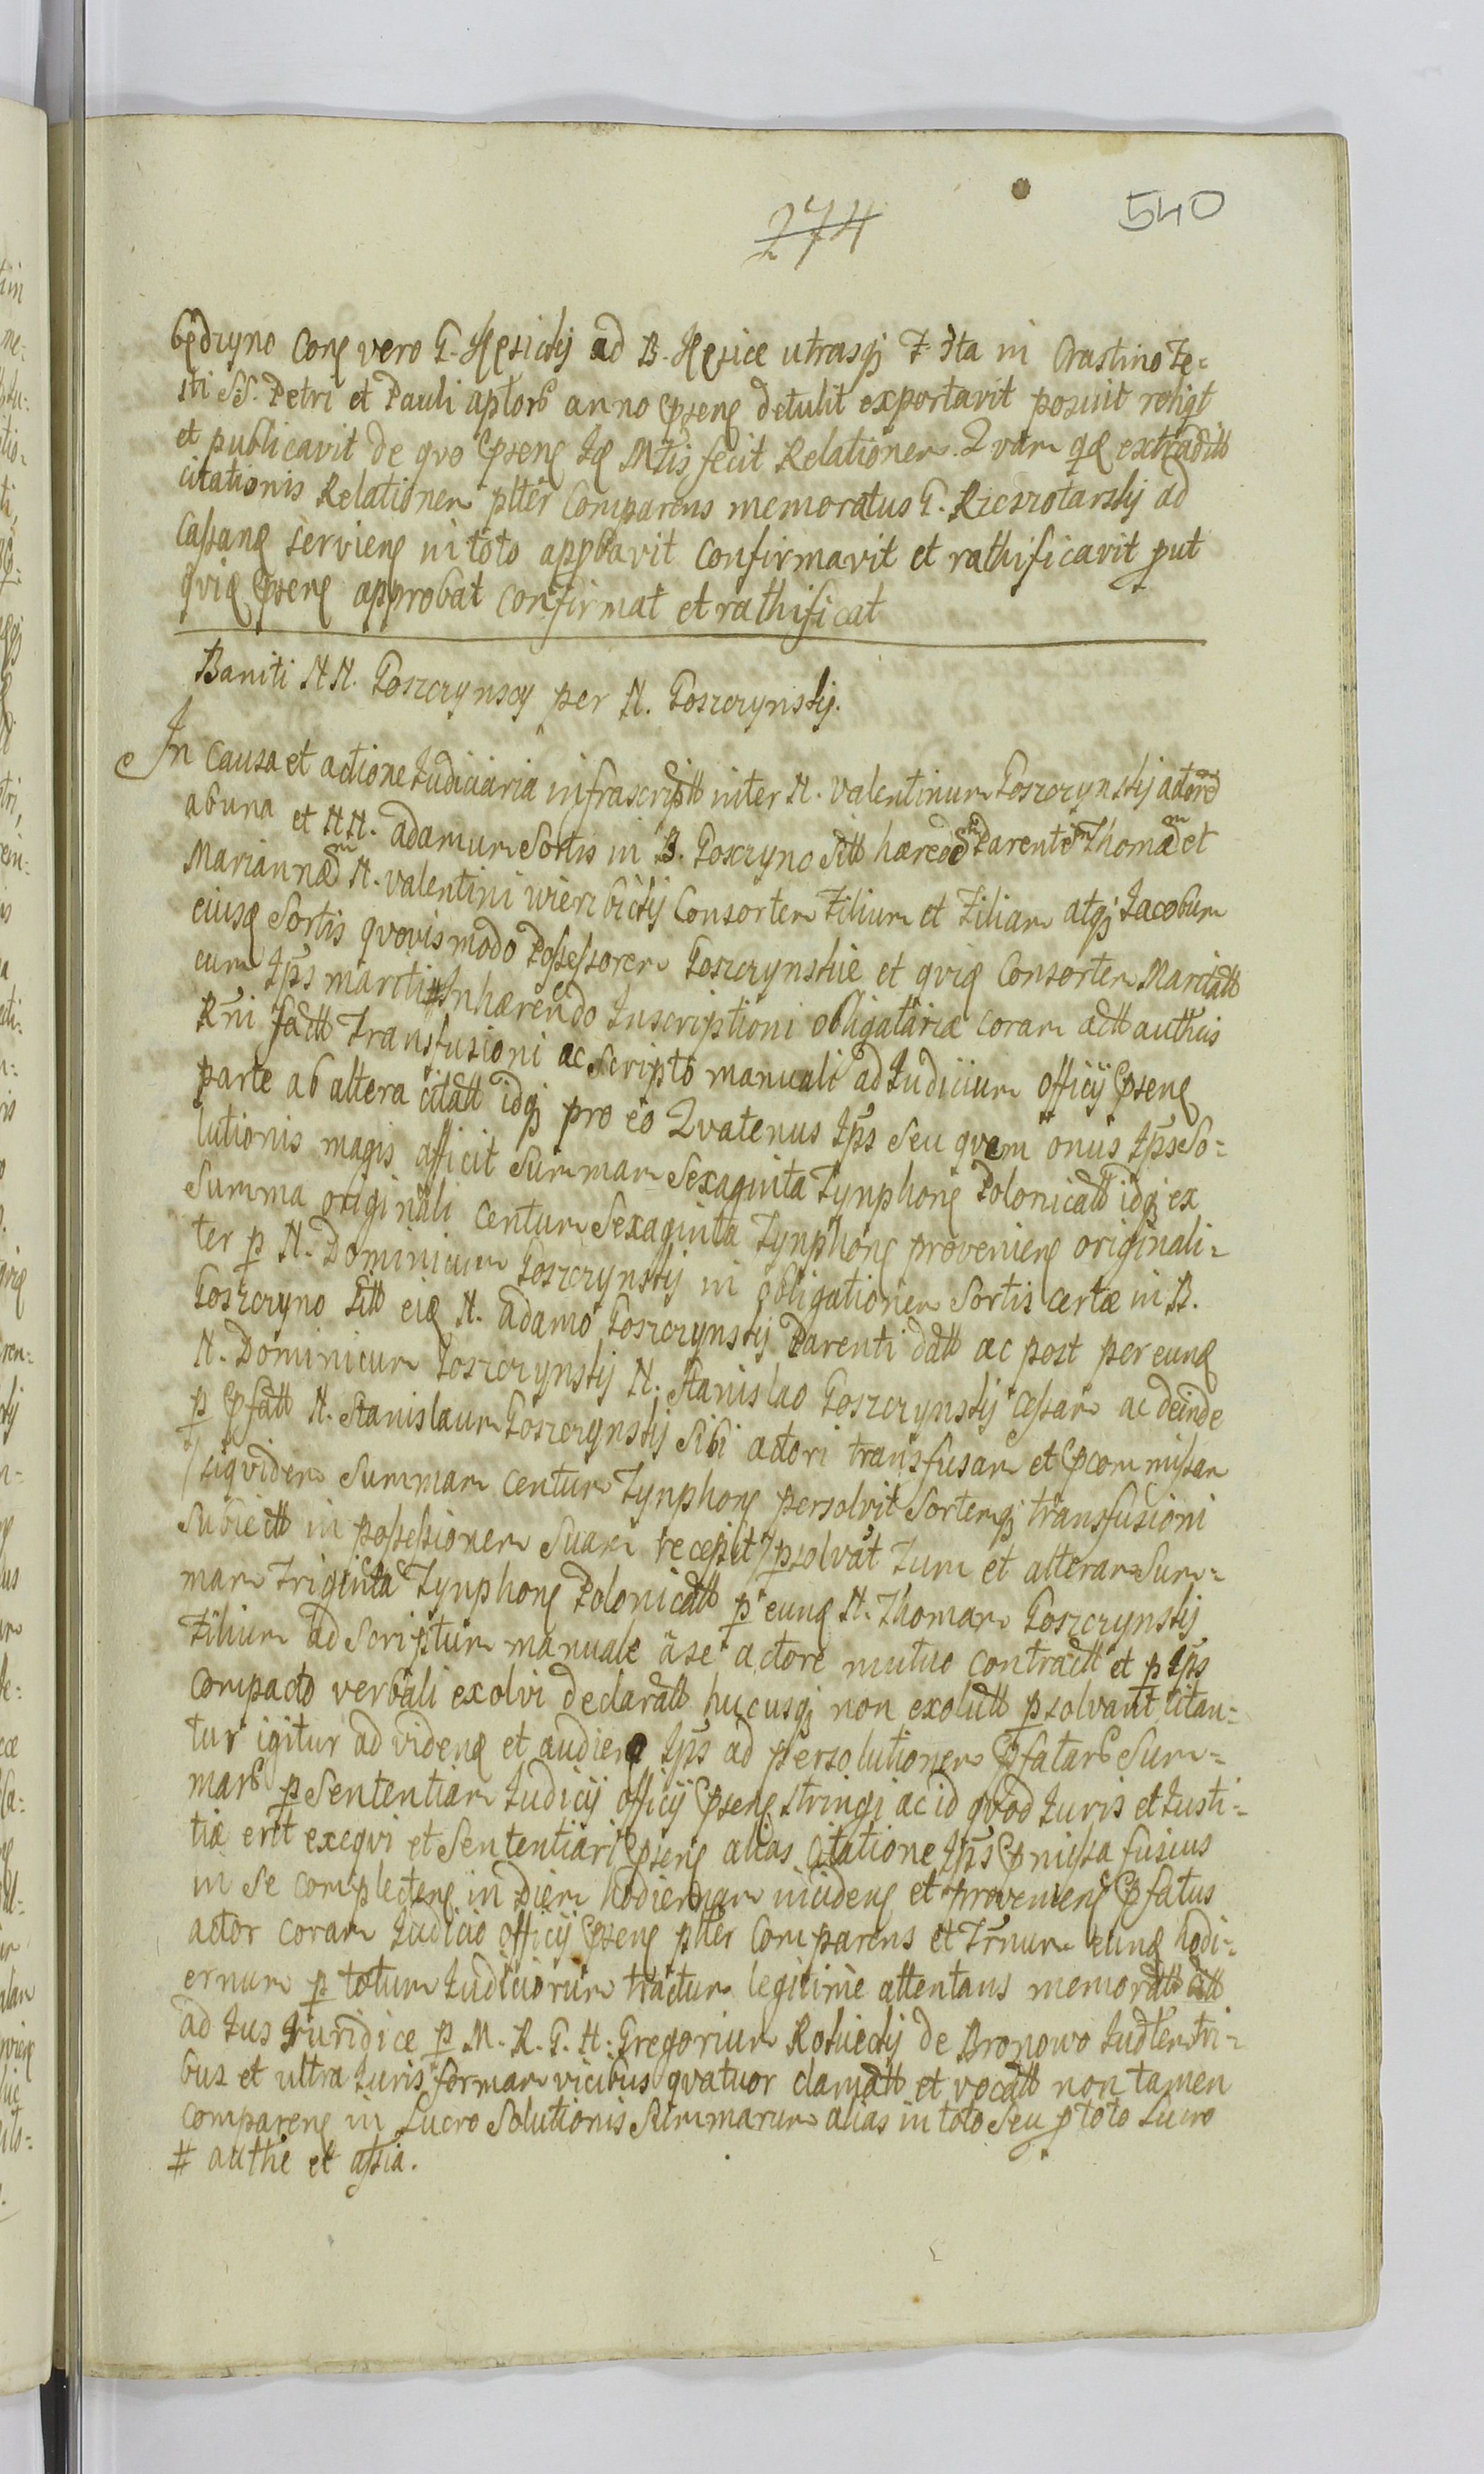 274
540
będzyno Corę vero G. Hęsickÿ ad B. Hęsice utrasqȝ F. Ita in Crastino Fe=
sti SS. Petri et Pauli aptorȝ anno pseng detulit exportavit posuit
et publicavit de qvo pseng Mtis fecit Relationem. Qvam extradtt
citationis Relationem plter Comparens memoratus G. ad
Cassang servieng in toto appbavit confirmavit et rathificavit put
qvię pseng approbat confirmat et rathificat
Baniti NN. Goszczynscy per N. Goszczynskÿ.
In Causa et actione Judiciaria infrascriptt inter N. Valentinum Goszczynskÿ actorē
ab una et NN. Adamum Sortis in B. Goszczyno Sitt hæredē Parentem Thomam et
Mariannam N. Valentini Wierzbickÿ Consortem Filium et Filiam atqȝ Jacobum
eiusę Sortis qvovismodo Possessorem Goszczynskie et qvię Consortem Maritatt
cum Ips mariti # Inhærendo Inscriptioni obligatariæ coram actt authcis
Rni factt Transfusioni ac Scripto manuali ad Judicium officÿ pseng
parte ab altera citatt idqȝ pro eo Qvatenus Ips seu qvem onus Ips So=
lutionis magis afficit Summam Sexaginta Tynphong Polonicatt idqȝ ex
Summa originali Centum Sexaginta Tynphong provenieng originali=
ter p N. Dominicum Goszczynskÿ in obligationem Sortis certæ in B.
Goszczyno Sitt eię N. Adamo Goszczynskÿ Parenti datt ac post per eung
N. Dominicum Goszczynskÿ N. Stanislao Goszczynskÿ cessam ac deinde
p pfatt N. Stanislaum Goszczynskÿ Sibi actori transfusam et pcommissam
/siqvidem Summam centum Tynphong persolvit Sortemqȝ transfusioni
Subiectt in possessionem Suam recepit/ psolvat Tum et alteram Sum=
mam Triginta Tynphong Polonicatt p eung N. Thomam Goszczynskÿ
Filium ad Scriptum manuale a se actore mutuo contractt et p Ips
compacto verbali exolvi declaratt hucusqȝ non exolutt psolvant citan=
tur igitur ad videng et audieng Ips ad persolutionem pfatarȝ Sum=
marȝ p Sententiam Judicÿ officÿ pseng stringi ac id qvod Juris et Justi=
tiæ erit exeqvi et Sententiari pseng alias Citatione Ips pmissa fusius
in se complecteng in Diem hodiernam incideng et provenieng pfatus
actor coram Judicio officÿ pseng plter Comparens et Trnum eung hodi=
ernum p totum Judiciorum tractum legitime attentans memoratt citt
ad Jus Juridice p M. R. G. N. Gregorium de Bronowo Judtem tri=
bus et ultra Juris formam vicibus qvatuor clamatt et vocatt non tamen
compareng in Lucro Solutionis Summarum alias in toto Seu p toto Lucro
# authe et assia.